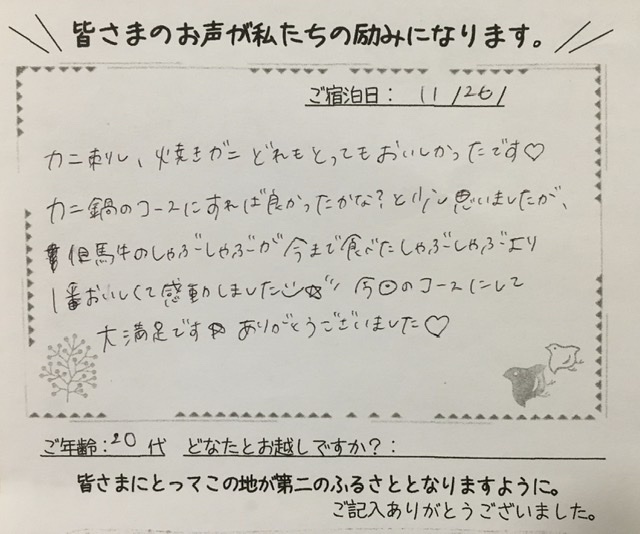 皆さまのお声が私たちの励みになります。
ご宿泊日: 11/26/
カニ刺し、焼きガニ どれもとってもおいしかったです♡
カニ鍋のコースにすれば良かったかな?と少し思いましたが、
但馬牛のしゃぶしゃぶが今まで食べたしゃぶしゃぶより
1番おいしくて感動しました 今回のコースにして
大満足です ありがとうございました♡
ご年齢:20代 どなたとお越しですか?:
皆さまにとってこの地が第二のふるさととなりますように。
ご記入ありがとうございました。